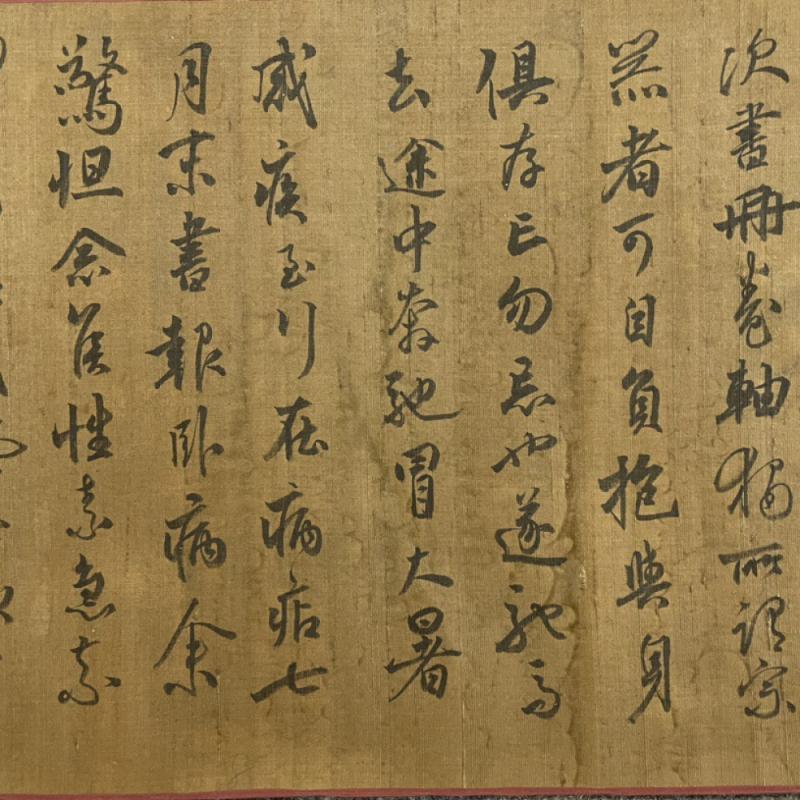 次書冊卷軸獨所謂宗
器者可自負抱與身
俱存亡勿忘也遂馳馬
去途中奔馳冒大暑
感疾至行在病痁七
月末書報臥病余
驚怛念侯性素急哀